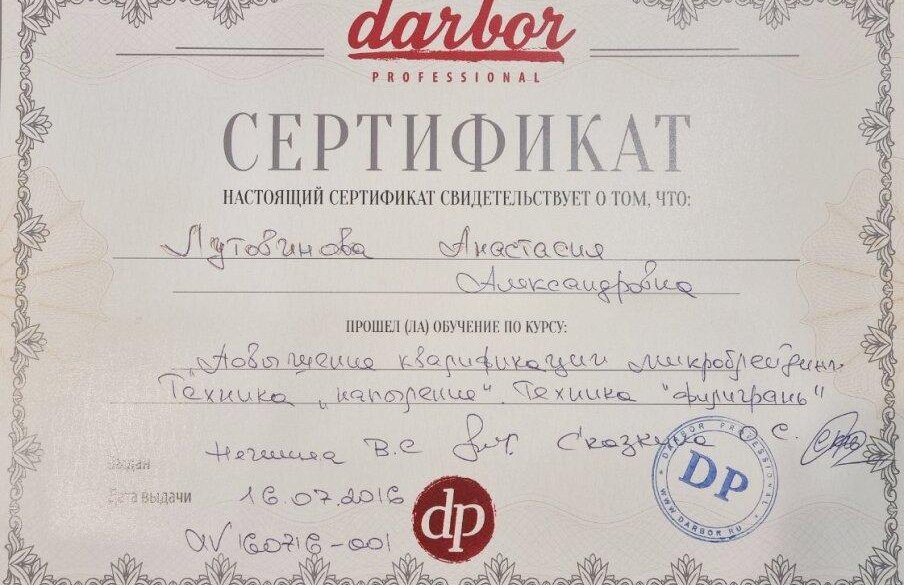 darbor
PROFESSIONAL
СЕРТИФИКАТ
НАСТОЯЩИЙ СЕРТИФИКАТ СВИДЕТЕЛЬСТВУЕТ О ТОМ, ЧТО:
Лутовинова Анастасия
Александровна
ПРОШЕЛ (ЛА) ОБУЧЕНИЕ ПО КУРСУ:
„Повышение квалификации микроблейдинг
Техника „напыление“. Техника "филигрань"
Выдан В.С Сказкина О.С.
Дата выдачи 16.07.2016
160716-001
dp
DARBOR PROFESSIONAL
DP
WWW.DARBOR.RU